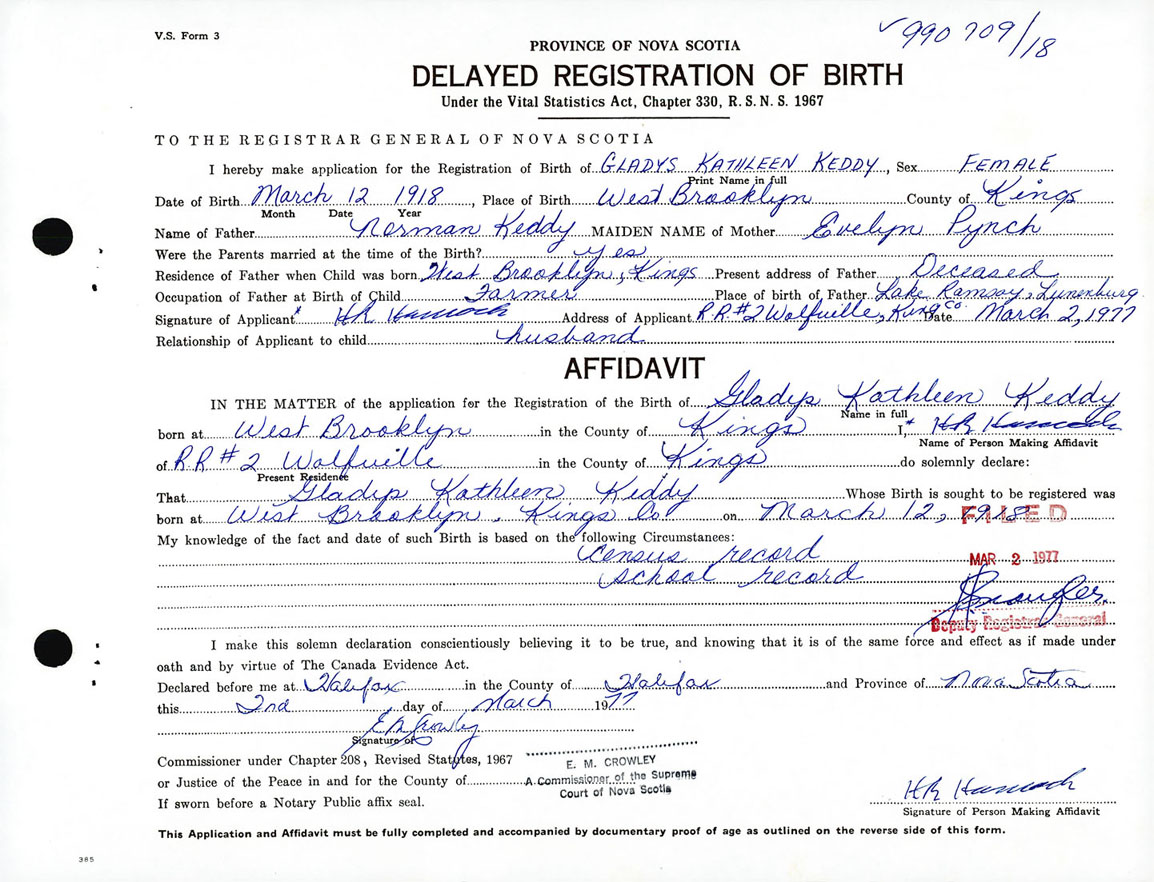 V.S. Form 3
990 709/18
PROVINCE OF NOVA SCOTIA
DELAYED REGISTRATION OF BIRTH
Under the Vital Statistics Act, Chapter 330, R.S.N.S. 1967
TO THE REGISTRAR GENERAL OF NOVA SCOTIA
I hereby make application for the Registration of Birth of GLADYS KATHLEEN KEDDY, Sex FEMALE
Print Name in full
Date of Birth March 12 1918, Place of Birth West Brooklyn County of Kings
Month Date Year
Name of Father Norman Keddy MAIDEN NAME of Mother Evelyn Pynch
Were the Parents married at the time of the Birth? yes
Residence of Father when Child was born West Brooklyn, Kings Present address of Father Deceased
Occupation of Father at Birth of Child Farmer Place of birth of Father Lake Ramsay, Lunenburg
Signature of Applicant* HR Address of Applicant R.R.#2 Wolfville, Kings Co. Date March 2, 1977
Relationship of Applicant to child husband
AFFIDAVIT
IN THE MATTER of the application for the Registration of the Birth of Gladys Kathleen Keddy
Name in full
born at West Brooklyn in the County of Kings I,* HR
Name of Person Making Affidavit
of R.R #2 Wolfville in the County of Kings do solemnly declare:
Present Residence
That Gladys Kathleen Keddy Whose Birth is sought to be registered was
born at West Brooklyn, Kings Co on March 12, 1918
FILED
My knowledge of the fact and date of such Birth is based on the following Circumstances:
Census record
MAR 2 1977
school record
Deputy Registrar General
I make this solemn declaration conscientiously believing it to be true, and knowing that it is of the same force and effect as if made under
oath and by virtue of The Canada Evidence Act.
Declared before me at Halifax in the County of Halifax and Province of Nova Scotia
this 2nd day of March 1977
E M Crowley
Signature of
Commissioner under Chapter 208, Revised Statutes, 1967
E. M. CROWLEY
or Justice of the Peace in and for the County of
A Commissioner of the Supreme
Court of Nova Scotia
If sworn before a Notary Public affix seal.
HR
Signature of Person Making Affidavit
This Application and Affidavit must be fully completed and accompanied by documentary proof of age as outlined on the reverse side of this form.
385